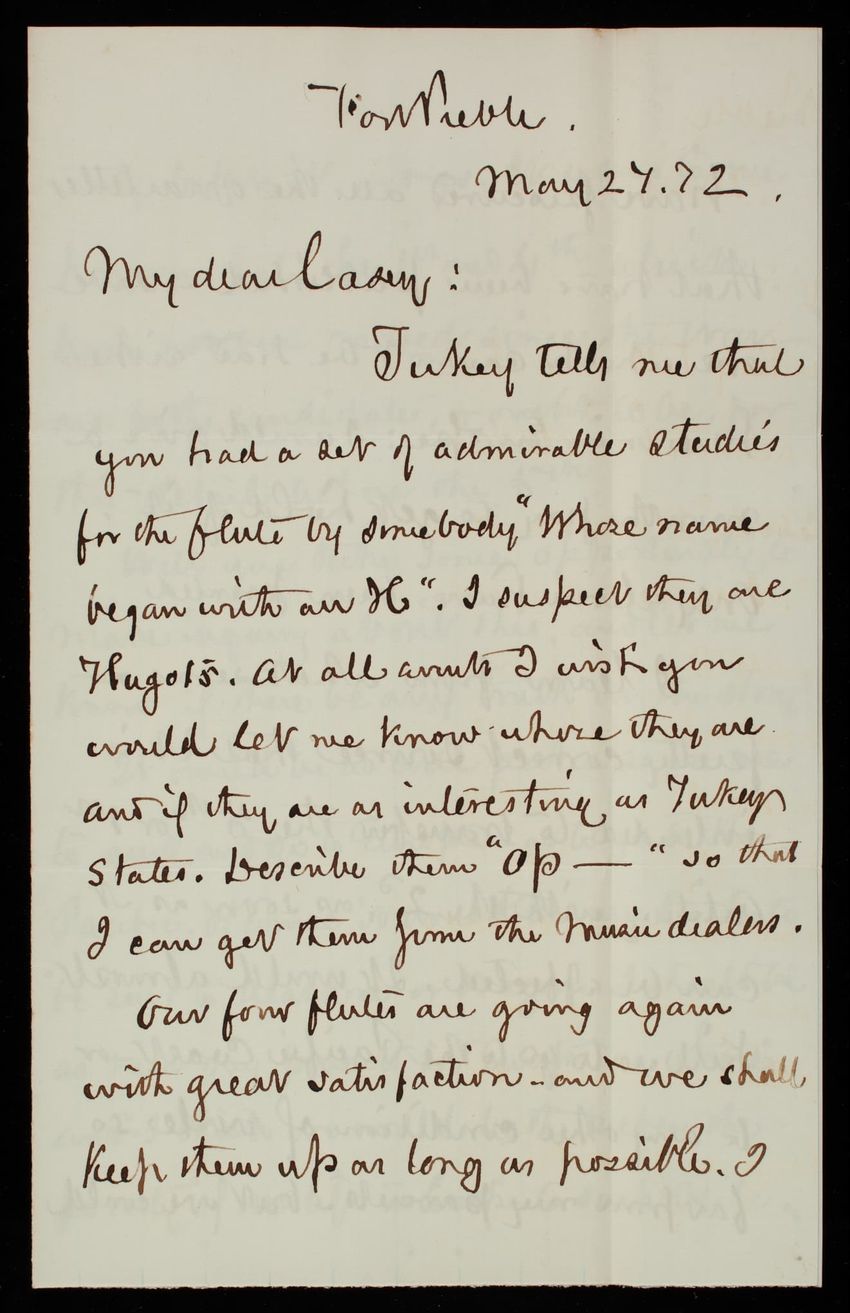 Fort Preble.
May 27. 72.
My dear Casey:
Tukey tells me that
you had a set of admirable studies
for the flute by somebody "Whose name
began with an H". I suspect they are
Hugots. At all events I wish you
would let me know whose they are
and if they are as interesting as Tukey
states. Describe them "Op — " so that
I can get them from the Music dealers.
Our four flutes are going again
with great satisfaction - and we shall
keep them up as long as possible. I